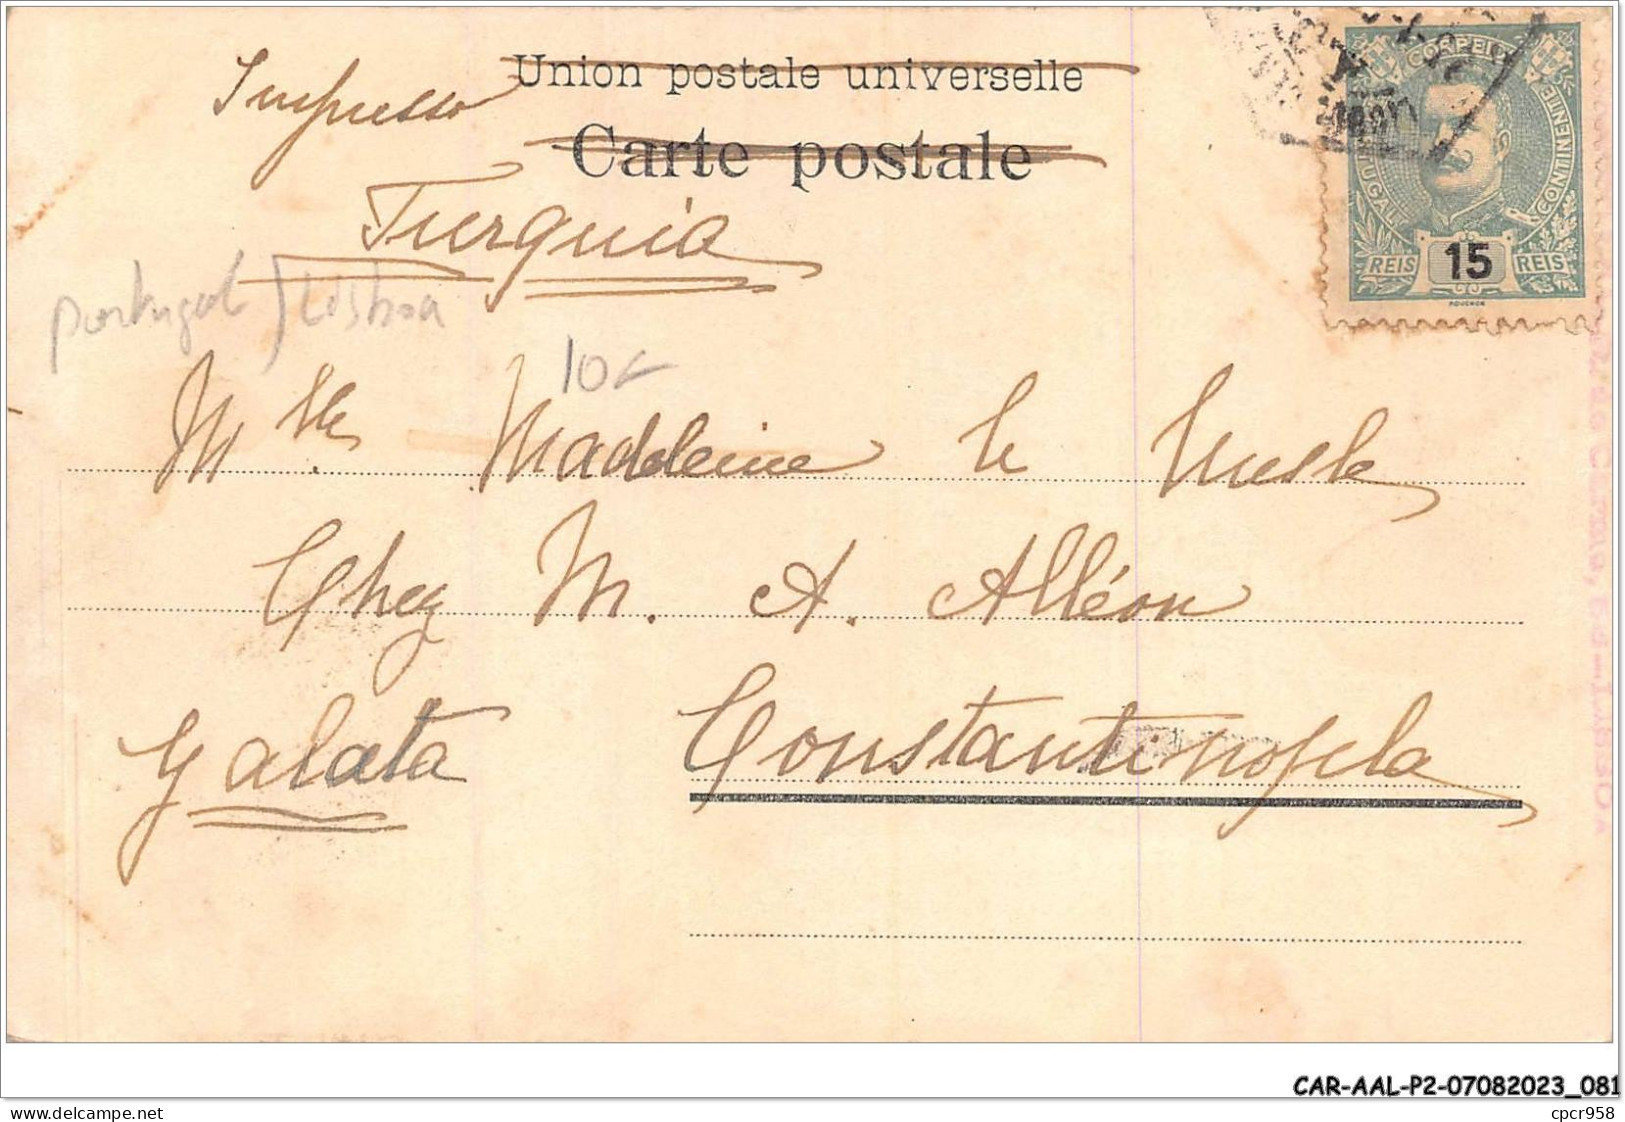 Union postale universelle
Impresso
Carte postale
Turquia
Portugal / Lisboa
10€
CORREIOS
PORTUGAL CONTINENTE
REIS 15 REIS
MOUCHON
Mlle Madeleine le
Chez M. A. Alléon
Galata Constantinopela
CAR-AAL-P2-07082023_081
cpcr958